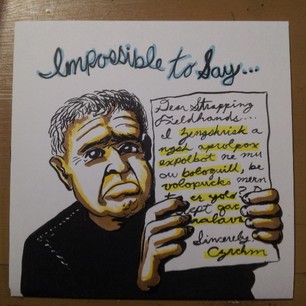 Impossible to Say...
Dear Strapping
Fieldhands...
I zengshrick a
aprolpox
expolbot ne mu
ou bobogull, be
volopucks mern
er yolo
gar
Sincerely
Cyrchm